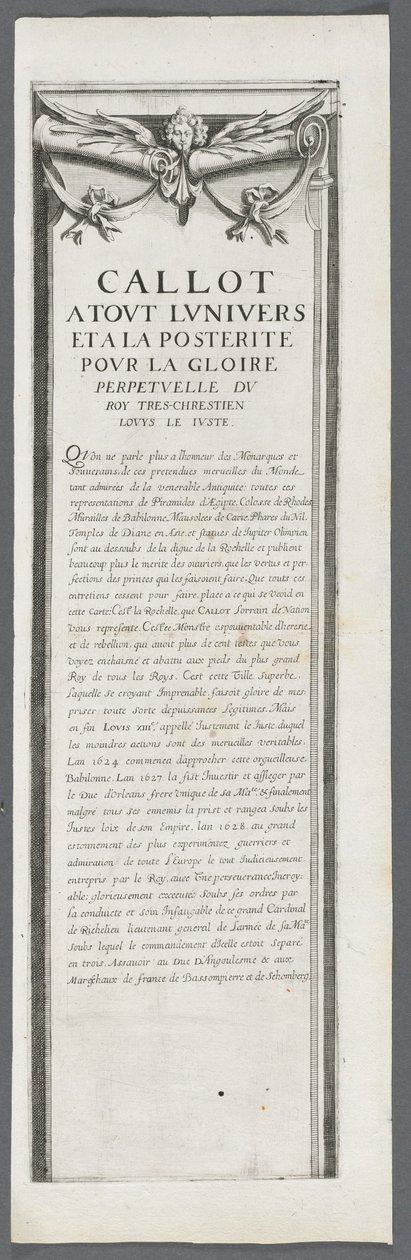 CALLOT
A TOVT LVNIVERS
ET A LA POSTERITE
POVR LA GLOIRE
PERPETVELLE DV
ROY TRES-CHRESTIEN
LOVYS LE IVSTE.
QVon ne parle plus a lhonneur des Monarques et
Souuerains, de ces pretendues merueilles du Monde
tant admirées de la venerable Antiquité: toutes ces
representations de Piramides dÆgipte. Colosse de Rhodes
Murailles de Babilonne, Mausolees de Carie, Phares du Nil.
Temples de Diane en Asie, et statues de Iupiter Olimpien
sont au dessoubs de la digue de la Rochelle et publient
beaucoup plus le merite des ouuriers, que les vertus et per-
fections des princes qui les faisoient faire. Que touts ces
entretiens cessent pour faire place a ce qui se veoid en
cette Carte: Cest la Rochelle, que CALLOT Lorrain de Nation
vous represente. Cest ce Monstre espouuentable dheresie
et de rebellion, qui auoit plus de cent testes que vous
voyez enchaisné et abattu aux pieds du plus grand
Roy de tous les Roys. Cest cette Ville Superbe,
Laquelle se croyant Imprenable, faisoit gloire de mes
priser toute sorte de puissances Légitimes. Mais
en fin LOVIS XIII.e appellé Iustement le Iuste, duquel
les moindres actions sont des merueilles veritables.
Lan 1624 commenca dapprocher cette orgueilleuse
Babilonne. Lan 1627. la fist Inuestir et assieger par
le Duc dOrleans frere vnique de sa Ma.te & finalement
malgré tous ses ennemis la prist et rangea Soubs les
Iustes loix de son Empire. lan 1628. au grand
estonnement des plus experimentez guerriers et
admiration de toute l'Europe le tout Iudicieusement
entrepris par le Roy, auec vne perseuerance Incroy-
able; glorieusement execcutée Soubs ses ordres par
la conduicte et soin Infatigable de ce grand Cardinal
de Richelieu lieutenant general de Larmée de sa Ma.te
Soubs lequel le commandement dIcelle estoit Separé
en trois. Assauoir au Duc DAngoulesme & aux
Mareschaux de france de Bassompierre et de Schomberg.